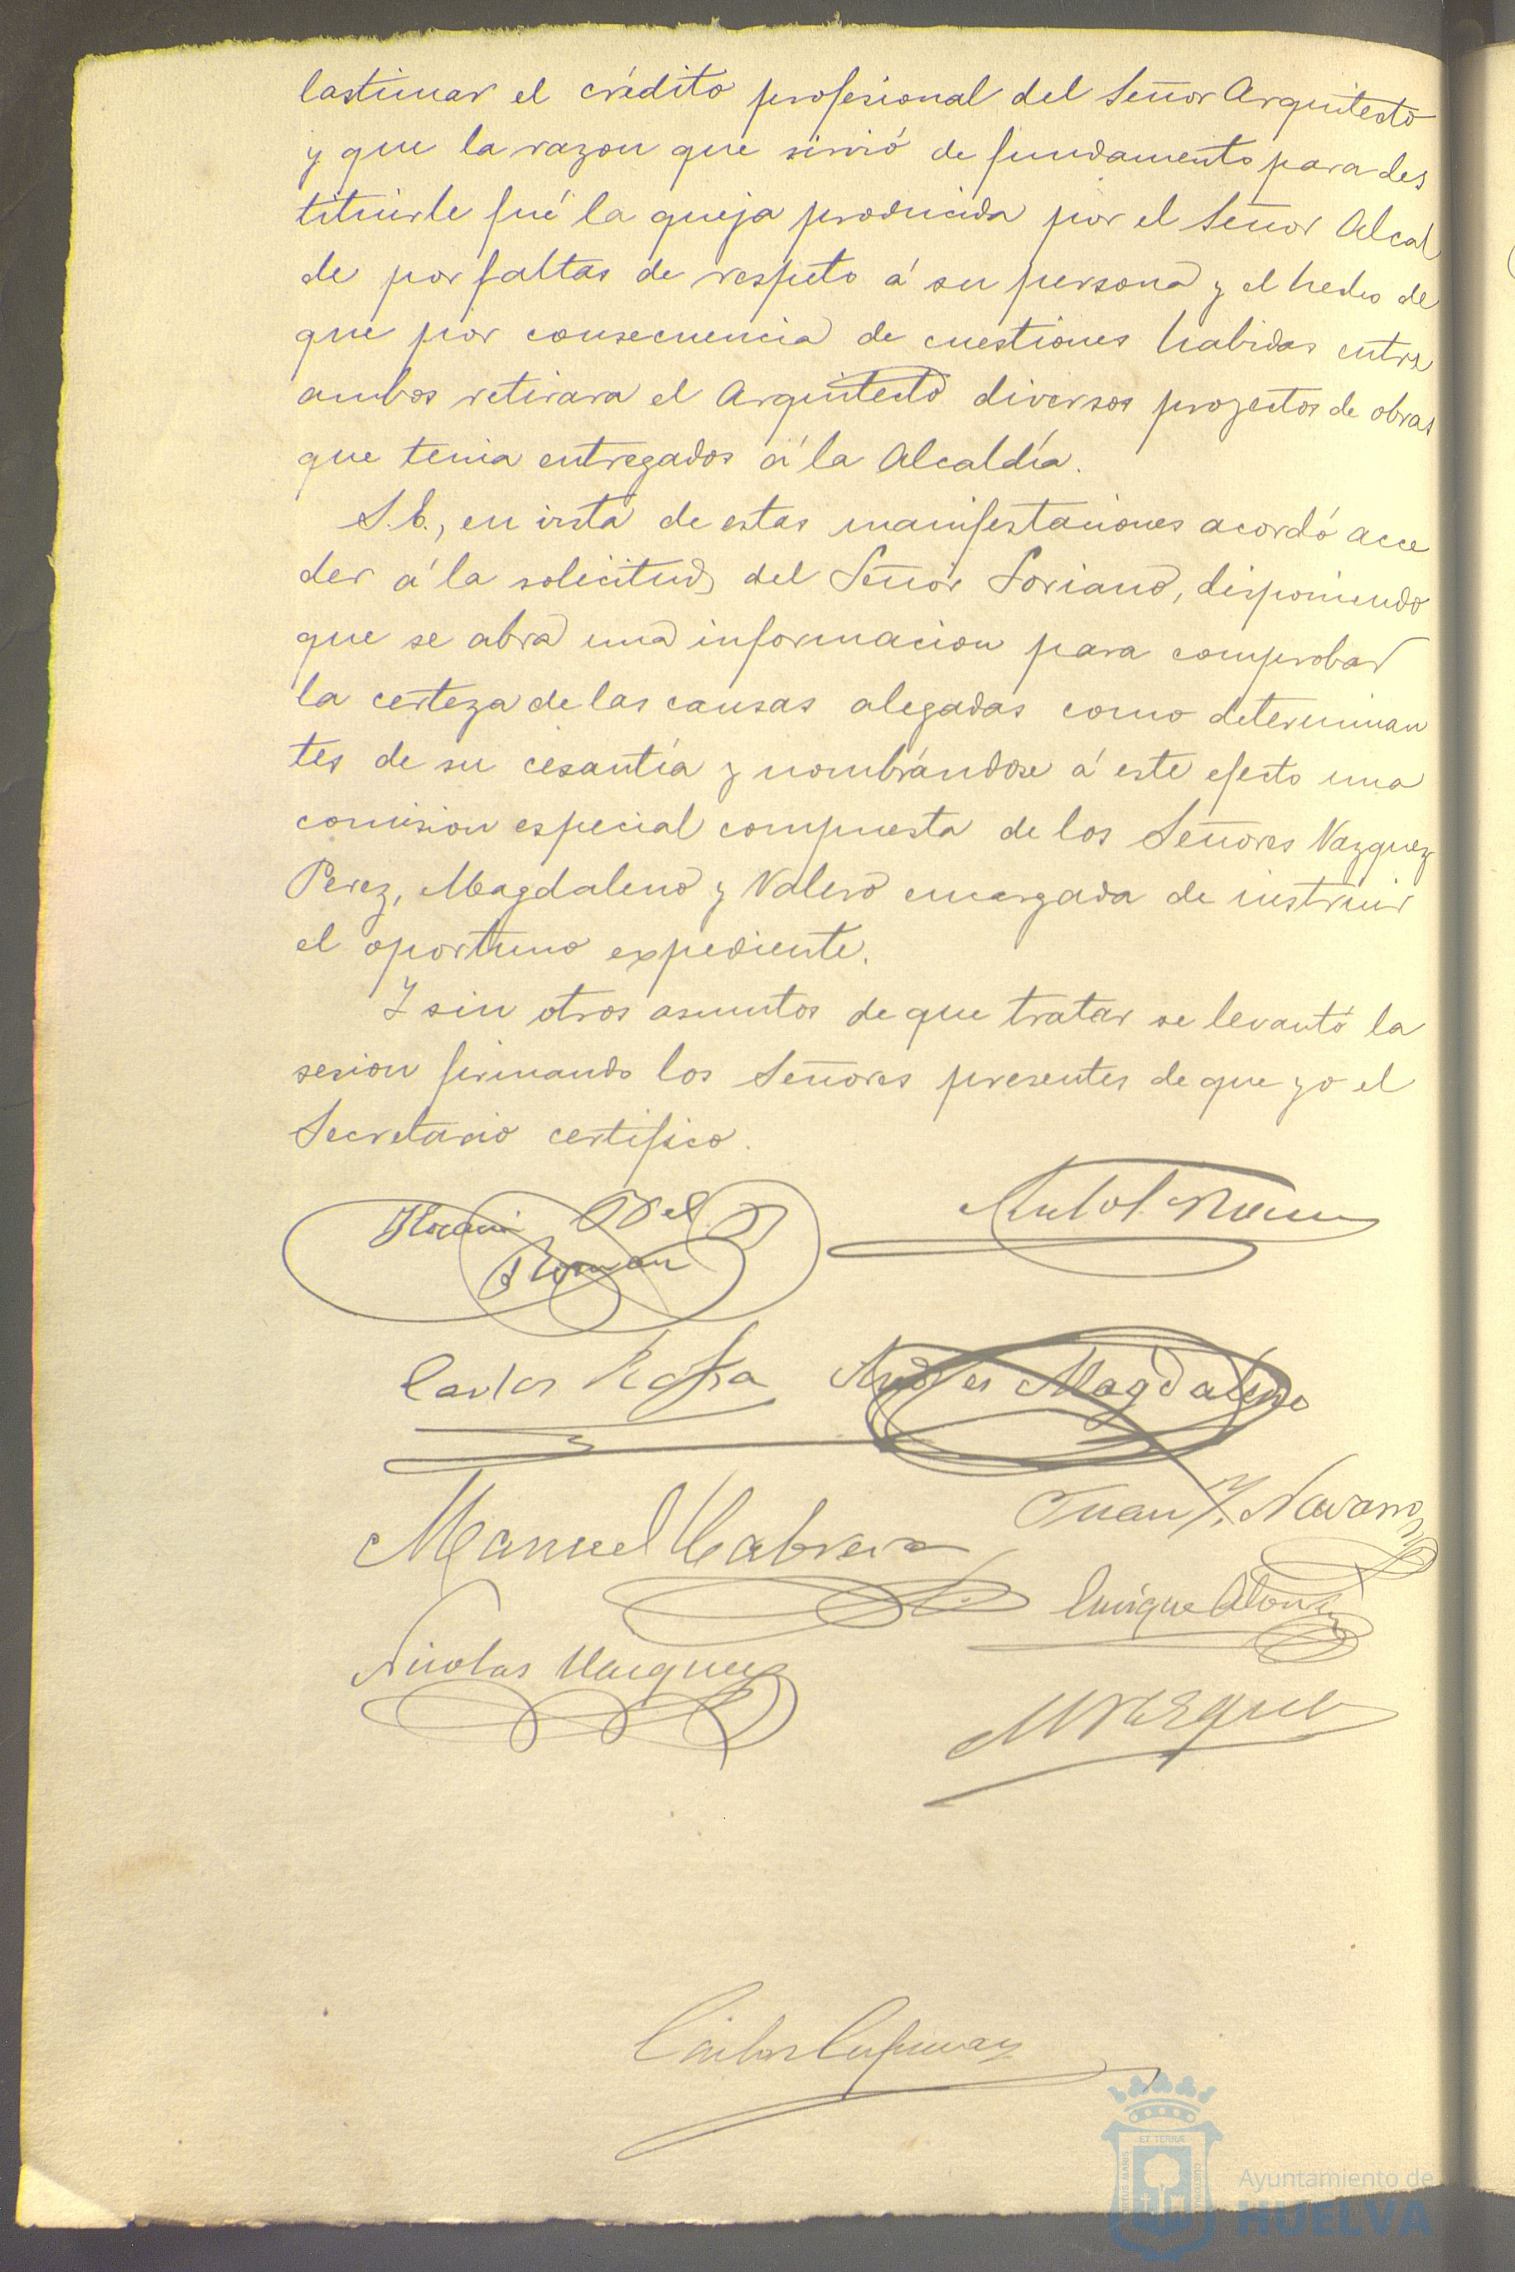 lastimar el crédito profesional del Señor Arquitecto
y que la razon que sirvió de fundamento para des
tituirle fué la queja producida por el Señor Alcal
de por faltas de respeto á su persona y el hecho de
que por consecuencia de cuestiones habidas entre
ambos retirara el Arquitecto diversos proyectos de obras
que tenia entregados á la Alcaldía.
S.E., en vista de estas manifestaciones acordó acce
der á la solicitud del Señor Soriano, disponiendo
que se abra una informacion para comprobar
la certeza de las causas alegadas como determinan
tes de su cesantía y nombrándose á este efecto una
comision especial compuesta de los Señores Vazquez
Perez, Magdaleno y Valero encargada de instruir
el oportuno expediente.
Y sin otros asuntos de que tratar se levantó la
sesion firmando los Señores presentes de que yo el
Secretario certifico.
Roman
Carlos Andres Magdaleno
Manuel Cabrera Juan Navarro
Enrique Alonso
Nicolas Vazquez
M Vazquez
Carlos
ET TERRAE
Ayuntamiento de
HUELVA